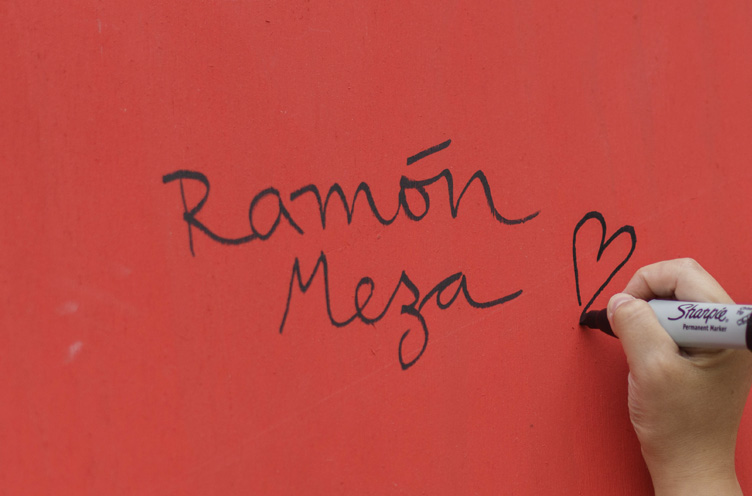 Ramón
Meza
Sharpie
Permanent Marker